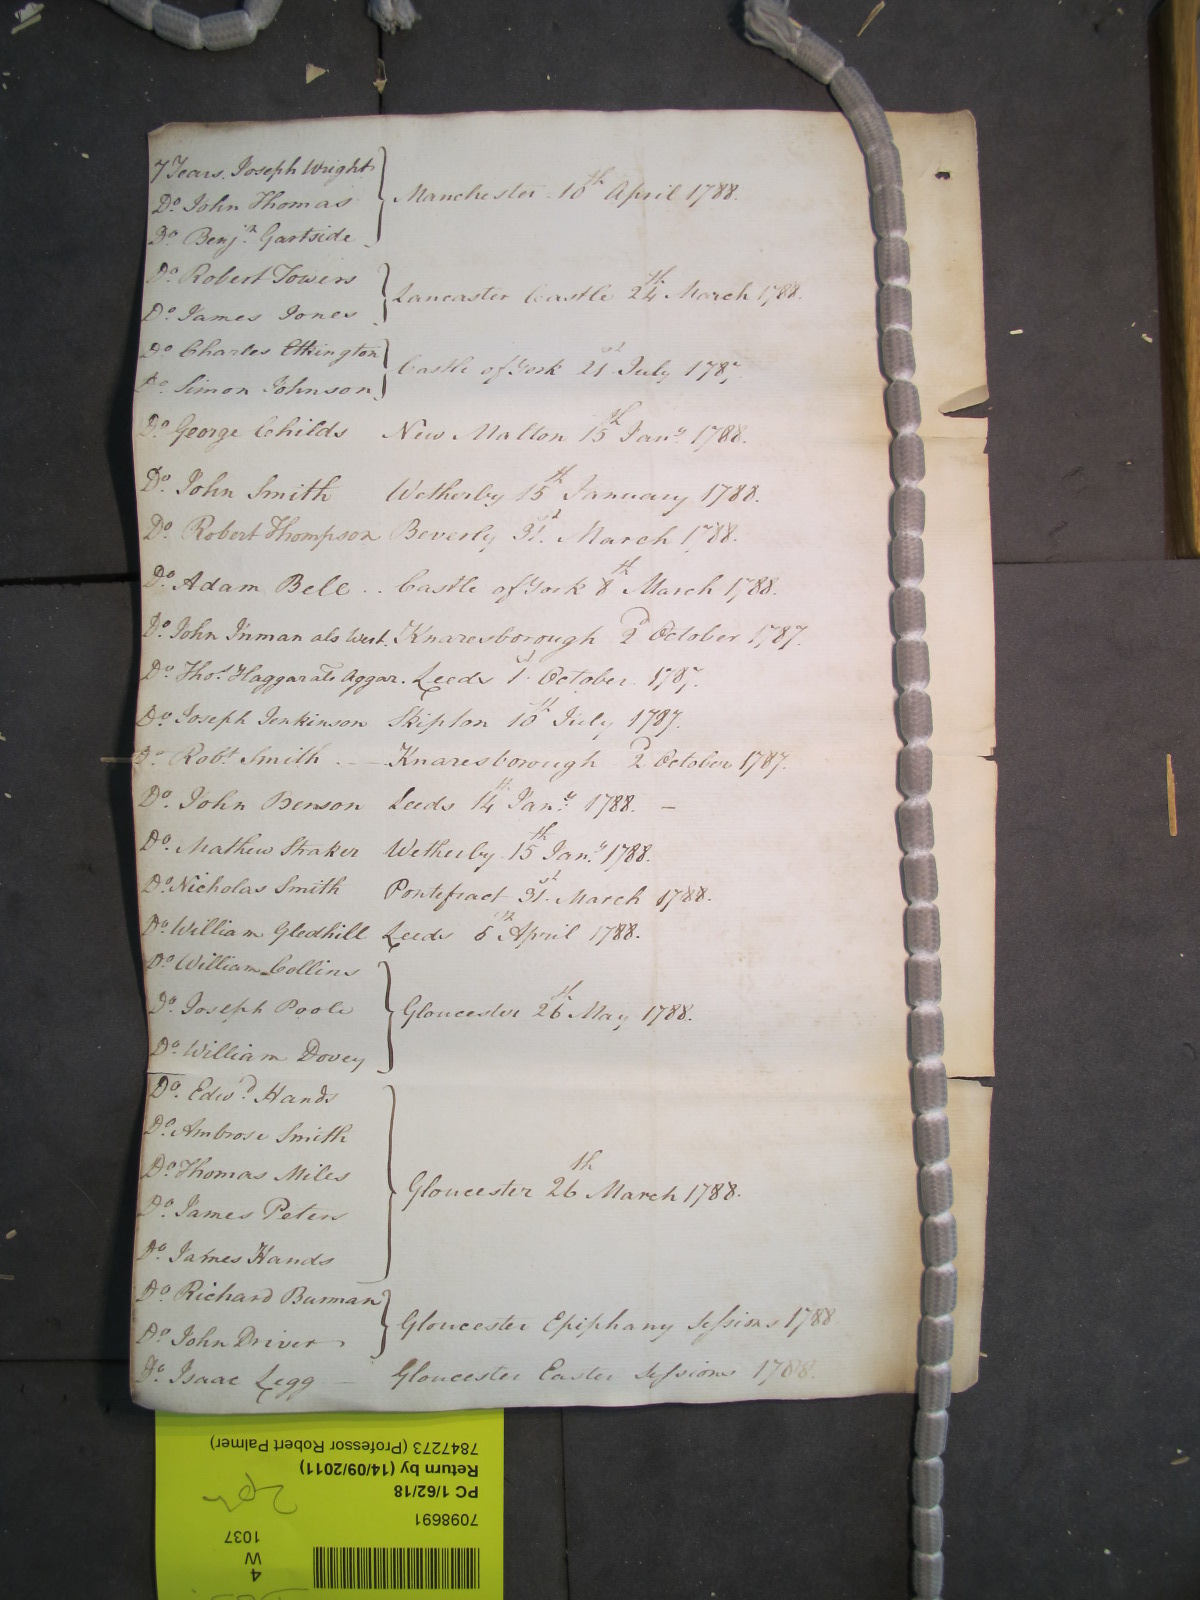 7 Years. Joseph Wright
Do. John Thomas
Manchester 10th April 1788.
Do. Benjn. Gartside
Do. Robert Towers
Lancaster Castle 24th March 1788.
Do. James Jones
Do. Charles Etkington
Castle of York 21st July 1787.
Do. Simon Johnson
Do. George Childs New Malton 15th Jany. 1788.
Do. John Smith Wetherby 15th January 1788.
Do. Robert Thompson Beverly 31st. March 1788.
Do. Adam Bell .. Castle of York 8th March 1788.
Do. John Inman als West. Knaresborough 2d October 1787.
Do. Thos. Haggar als Aggar. Leeds 1st October 1787.
Do. Joseph Jenkinson Skipton 10th July 1787.
Do. Robt. Smith .-- Knaresborough 2d October 1787.
Do. John Benson Leeds 14th Jany. 1788. -
Do. Mathew Straker Wetherby 15th Jany. 1788.
Do. Nicholas Smith Pontefract 31st. March 1788.
Do. William Gledhill Leeds 5th April 1788.
Do. William Collins
Do. Joseph Poole Gloucester 26th May 1788.
Do. William Dovey
Do. Edwd. Hands
Do. Ambrose Smith
Do. Thomas Miles
Gloucester 26th March 1788.
Do. James Peters
Do. James Hands
Do. Richard Burman
Gloucester Epiphany Sessions 1788
Do. John Driver
Do. Isaac Legg - Gloucester Easter Sessions 1788.
7098691
PC 1/62/18
Return by (14/09/2011)
7847273 (Professor Robert Palmer)
4
W
1037